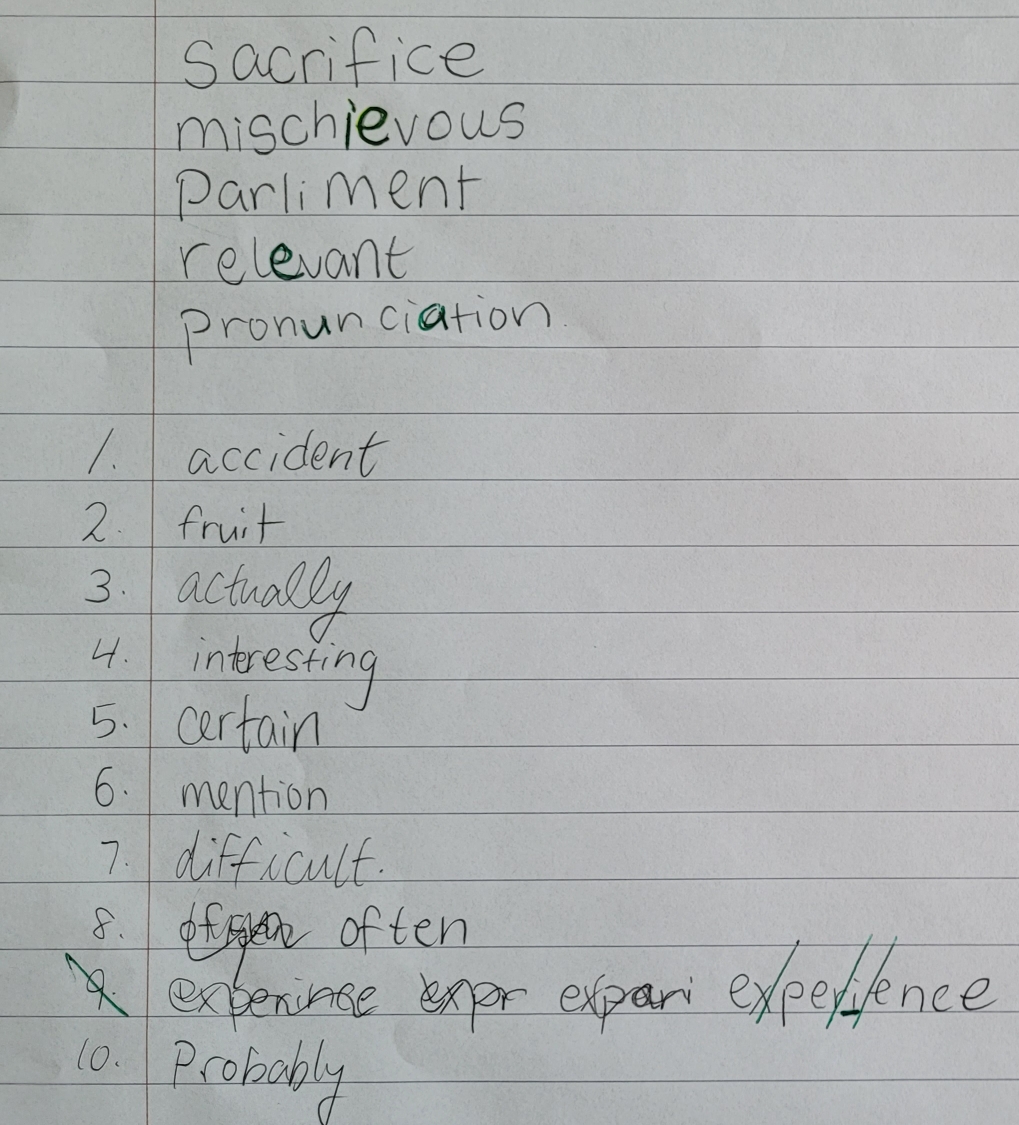 sacrifice
mischievous
Parliment
relevant
pronunciation.
1. accident
2. fruit
3. actually
4. interesting
5. certain
6. mention
7. difficult.
8. often
9. experince expr expari experience
10. Probably